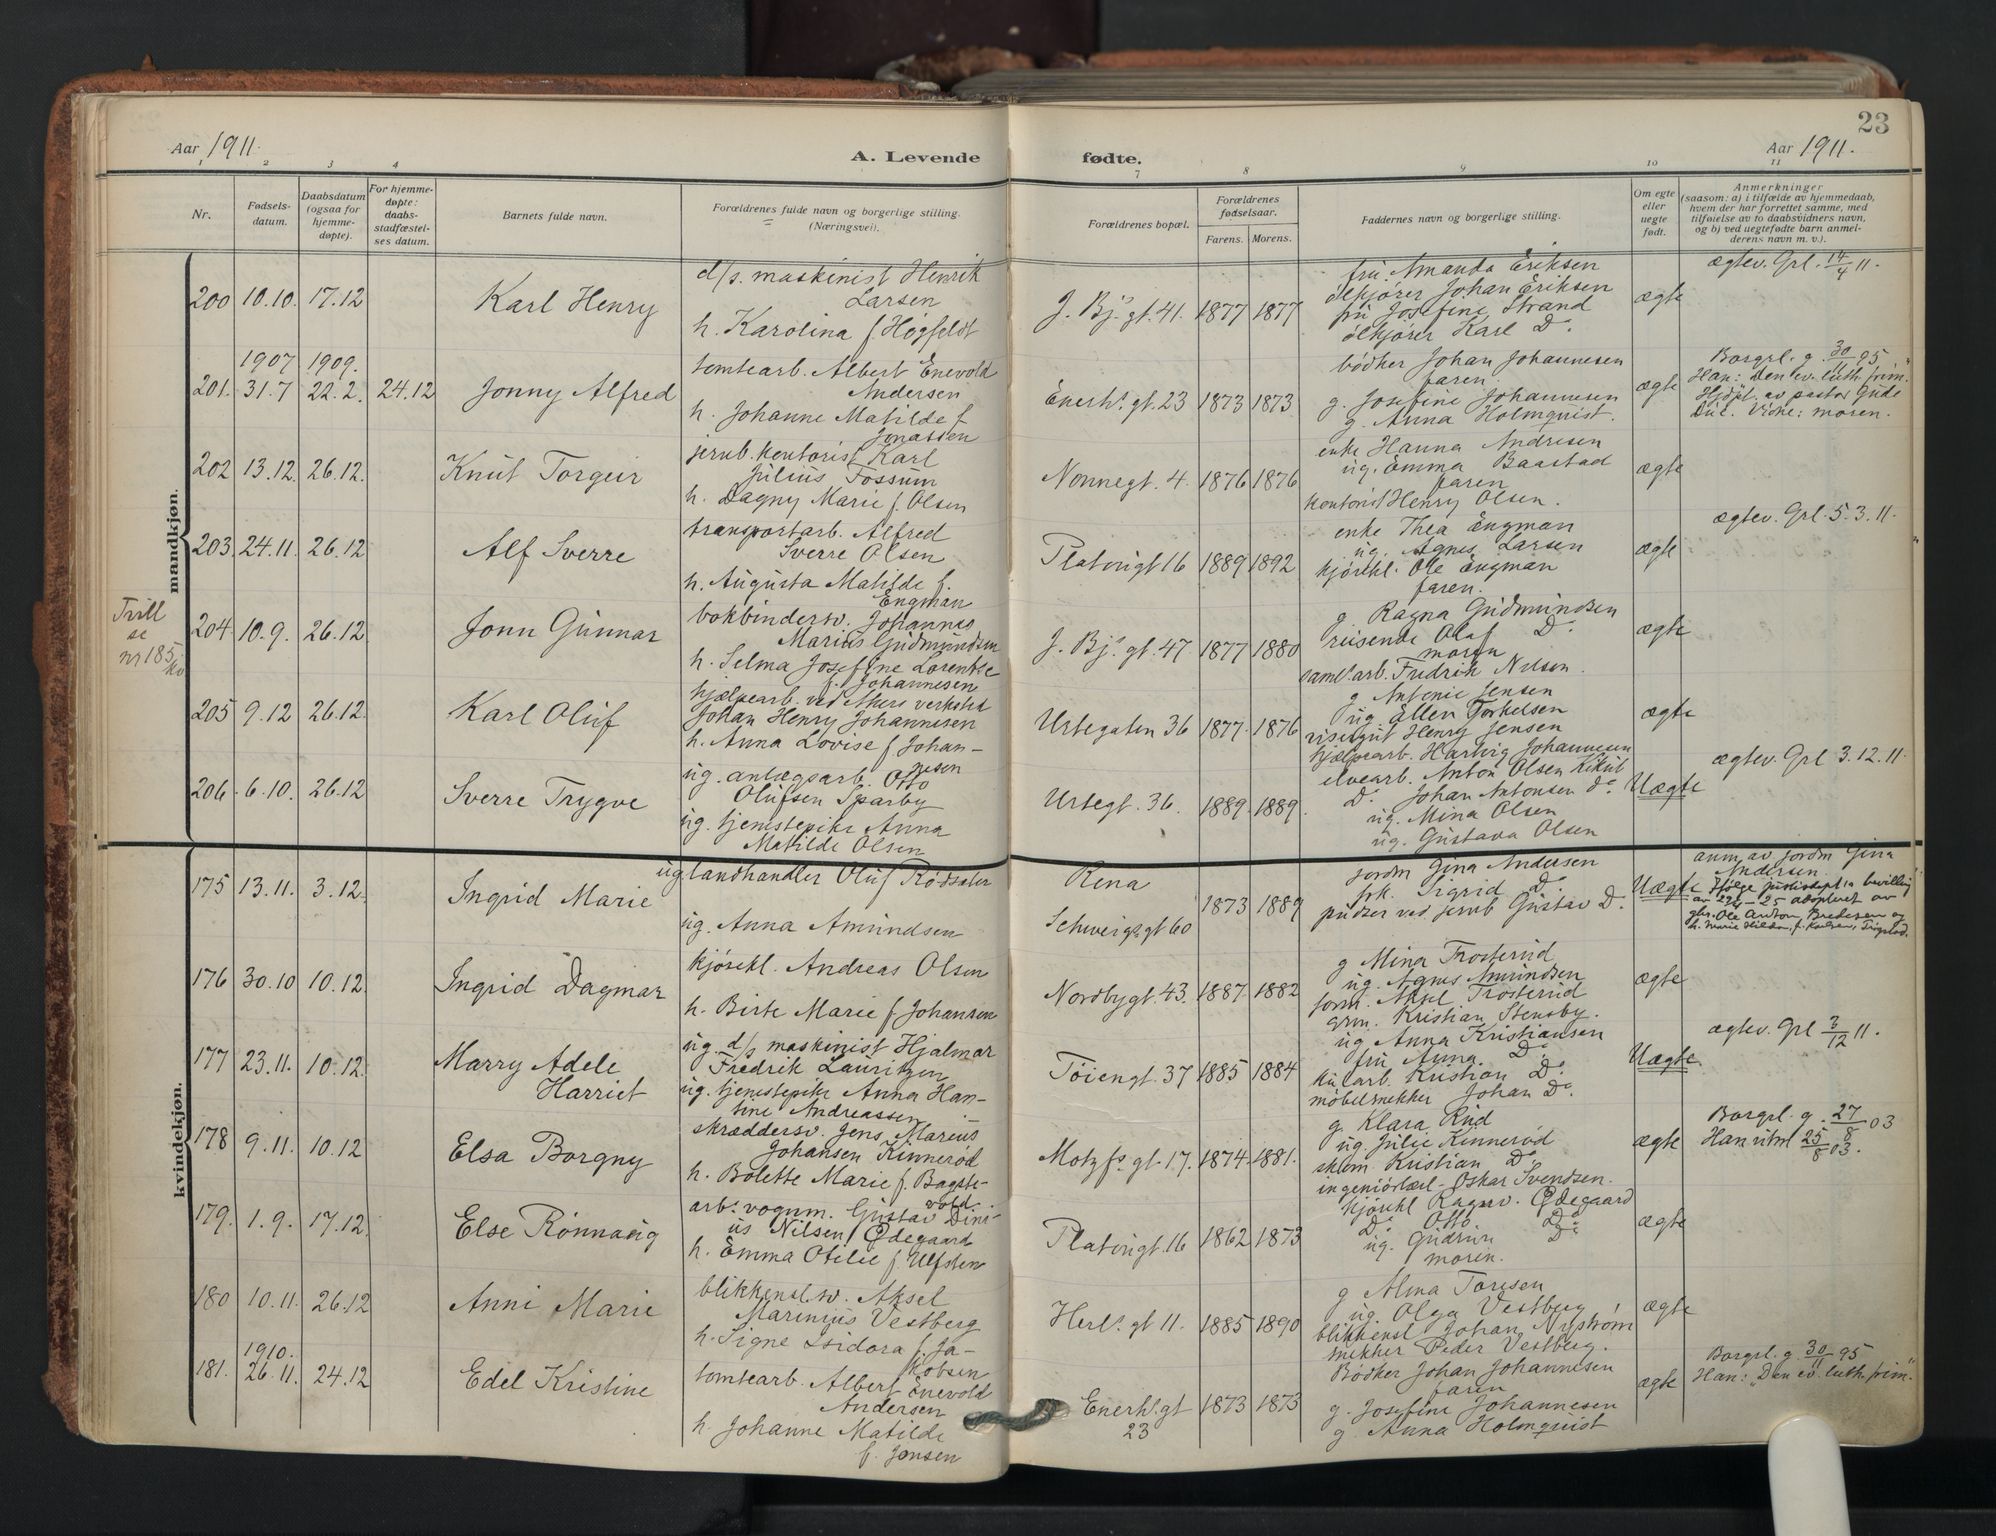 23
Aar 1911.
A. Levende fødte.
Aar 1911.
1 2 3 4 7 8 9 10 11
Nr.
Fødsels-
datum.
Daabsdatum
(ogsaa for
hjemme-
døpte).
For hjemme-
døpte:
daabs-
stadfæstel-
ses datum.
Barnets fulde navn.
Forældrenes fulde navn og borgerlige stilling.
(Næringsvei).
Forældrenes bopæl.
Forældrenes
fødselsaar.
Farens. Morens.
Faddernes navn og borgerlige stilling.
Om egte
eller
uegte
født.
Anmerkninger
(saasom: a) i tilfælde av hjemmedaab,
hvem der har forrettet samme, med
tilføielse av to daabsvidners navn,
og b) ved uegtefødte barn anmel-
derens navn m. v.).
mandkjøn.
200 10.10. 17.12
Karl Henry
d/s. maskinist Henrik
Larsen
h. Karolina f. Høgfeldt
J. Bj.s gt. 41. 1877 1877
fru Amanda Eriksen
ølkjører Johan Eriksen
fru Josefine Strand
ølkjører Karl Do.
ægte
ægtev. Grl. 14/4 11.
1907 1909.
201. 31.7 22.2. 24.12
Jonny Alfred
tomtearb. Albert Enevold
Andersen
h. Johanne Matilde f.
Jonassen
Enerh.s gt. 23 1873 1873
bødker Johan Johannesen
faren.
g. Josefine Johannesen
g. Anna Holmquist.
ægte
Borgrl. g. 30/11 95
Han: "Den ev. luth. frim."
Hjdøpt. av pastor Gude
Die. Vidne: moren.
202 13.12. 26.12.
Knut Torgeir
jernb. kontorist Karl
Julius Fossum
h. Dagny Marie f. Olsen
Nonnegt. 4. 1876 1876
enke Hanna Andresen
ug. Emma Baastad
faren
kontorist Henry Olsen.
ægte
203. 24.11. 26.12
Alf Sverre
transportarb. Alfred
Sverre Olsen
h. Augusta Matilde f.
Engman
Platougt 16 1889 1892
enke Thea Engman
ug. Agnes Larsen
kjørekl. Ole Engman
faren.
ægte
ægtev. Grl. 5.3.11.
Tvill
se
nr 185
kv
204 10.9. 26.12
Jonn Gunnar
bokbindersv. Johannes
Marius Gudmundsen
h. Selma Josefine Lorentze
f. Johannesen
J. Bj.s gt. 47 1877 1880
g. Ragna Gudmundsen
reisende Olaf Do.
moren
saml. arb. Fredrik Nilsen.
ægte
205 9.12 26.12.
Karl Oluf
hjælpearb. ved Akers verksted
Johan Henry Johannesen
h. Anna Lovise f. Johan-
nesen
Urtegaten 36 1877. 1876
g. Antonie Jensen
ug. Ellen Torkelsen
visergut Henry Jensen
hjælpearb. Hartvig Johannesen
ægte
206. 6.10. 26.12
Sverre Trygve
ug. anlægsarb. Otto
Olufsen Sparby
ug. tjenestepike Anna
Matilde Olsen
Urtegt. 36. 1889. 1889.
elvearb. Anton Olsen
Do. Johan Antonsen Do.
ug. Mina Olsen
ug. Gustava Olsen
Uægte
ægtev. Grl 3.12.11.
kvindekjøn.
175 13.11. 3.12.
Ingrid Marie
ug landhandler Oluf Rødsæter
ug. Anna Amundsen
Rena
Schweigs. gt 60
1873 1889
jordm Gina Andersen
frk. Sigrid Do.
pudser ved jernb Gustav Do.
Uægte
anm. av jordm Gina
Andersen.
Ifølge justisdept.s bevilling
av 25 adopteret av
gbr. Ole Anton Bredesen og
h. Marie Hilda, f. Karlsen,
176 30.10 10.12.
Ingrid Dagmar
kjørekl. Andreas Olsen
h. Birte Marie f. Johansen
Nordbygt. 43. 1887. 1882
g Mina Trosterud
ug. Agnes Amundsen
form. Aksel Trosterud
grm. Kristian Stensby.
ægte
177 23.11. 10.12.
Marry Adele
Harriet
ug. d/s maskinist Hjalmar
Fredrik Lauritzen
ug. tjenestepike Anna Han-
tine Andreassen
Töiengt. 37 1885 1884
ug Anna Kristiansen
fru Anna Do.
kularb. Kristian Do.
møbelsnekker Johan Do.
Uægte
ægtev. Grl 3/12 11.
178 9.11. 10.12.
Elsa Borgny
skræddersv. Jens Marius
Johansen Kinnerød
h. Bolette Marie f. Bagste-
vold.
Motzf.s gt. 17. 1874. 1881.
g. Klara Rud
ug. Julie Kinnerød
skom. Kristian Do.
ingeniørlærl. Oskar Svendsen.
ægte
Borgrl. g. 27/8 03
Han utm 25/8 03.
179. 1.9. 17.12.
Else Rönnaug
arb. vognm. Gustav Dini-
us Nilsen Ødegaard
h. Emma Otilie f. Ulfsten
Platougt. 16 1862 1873
kjørekl Ragnv. Ødegaard
Do. Otto Do.
ug. Gudrun Do.
moren.
ægte
180 10.11. 26.12
Anni Marie
blikkensl.sv. Aksel
Marinius Vestberg
h. Signe Isidora f. Ja-
kobsen
Herl.s gt 11. 1885 1890
g Alma Toresen
ug. Olga Vestberg
blikkensl Johan Nystrøm
snekker Peder Vestberg.
ægte
1910.
181. 26.11. 24.12
Edel Kristine
tomtearb. Albert Enevold
Andersen
h. Johanne Matilde
f. Jonsen
Enerh.s gt
23
1873 1873
Bødker Johan Johannesen
faren
g. Josefine Johannesen
g Anna Holmquist
ægte
Borgrl. g. 30/11 95
Han: "Den ev. luth. frim."